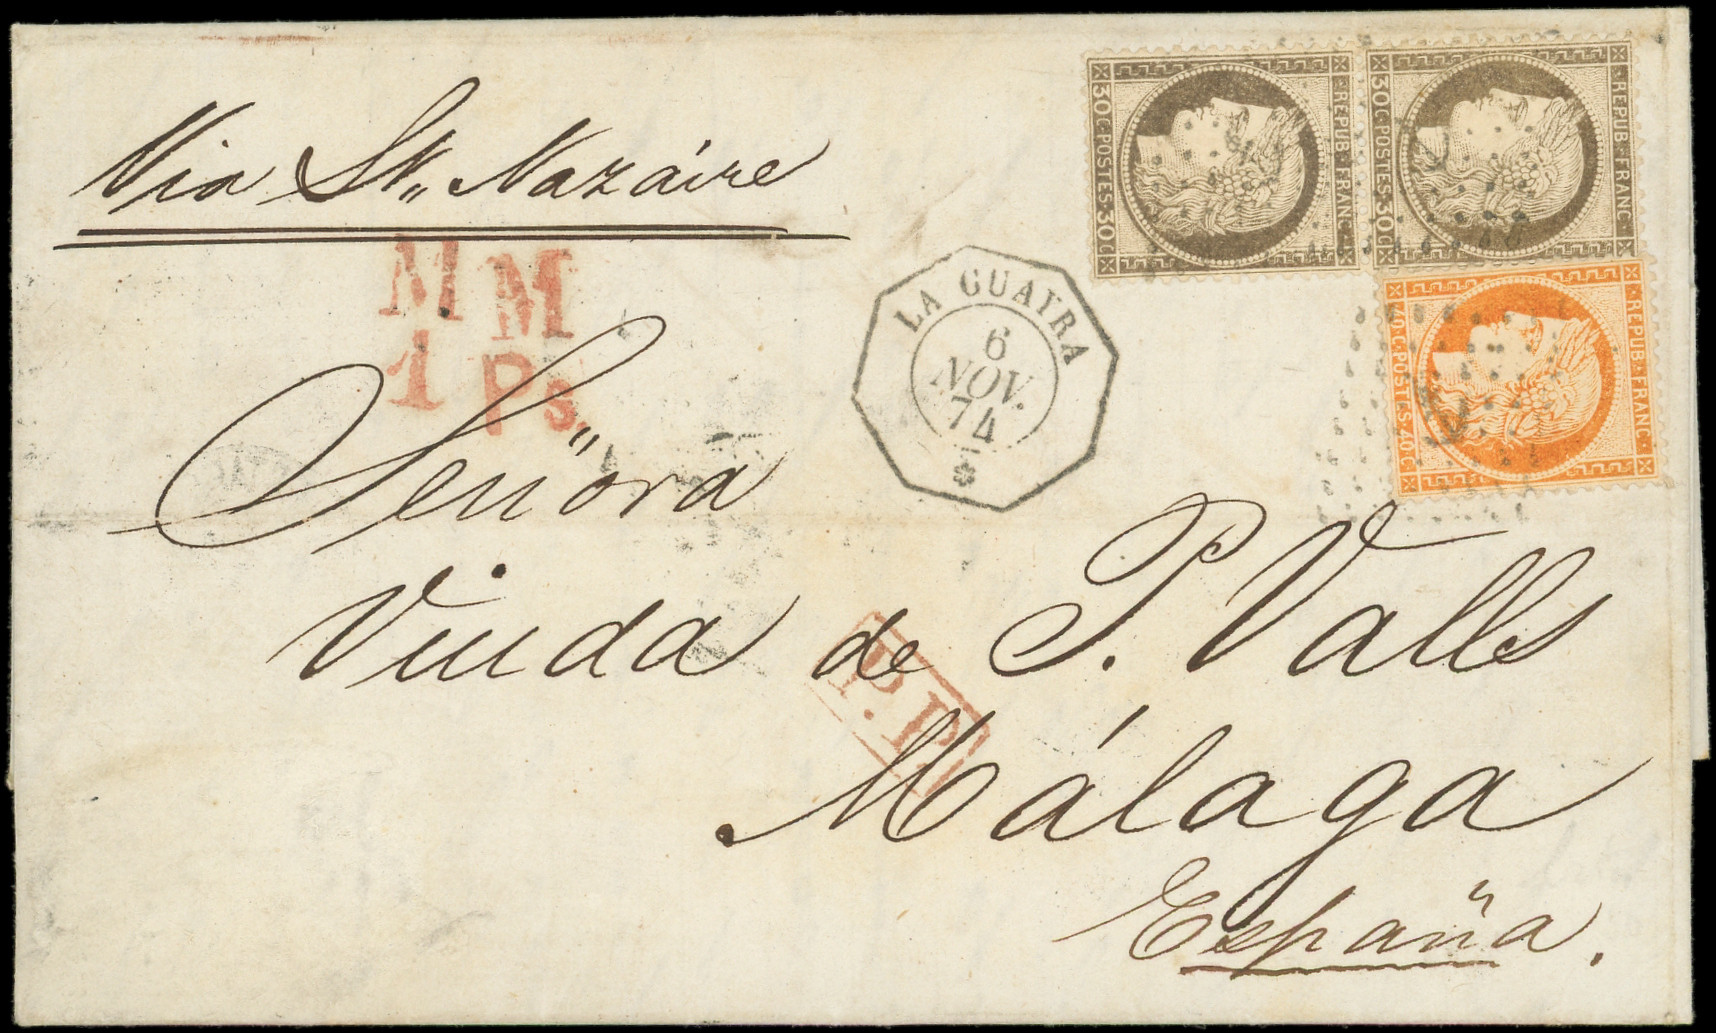 Via St„ Nazáire
30 C·POSTES·30 C
·REPUB·FRANC·
30 C·POSTES·30 C
·REPUB·FRANC·
40 C·POSTES·40 C
·REPUB·FRANC·
MM
1 Ps.
LA GUAYRA
6
NOV.
74
Señora
Viuda de P. Valls
P.P.
Málaga
España.